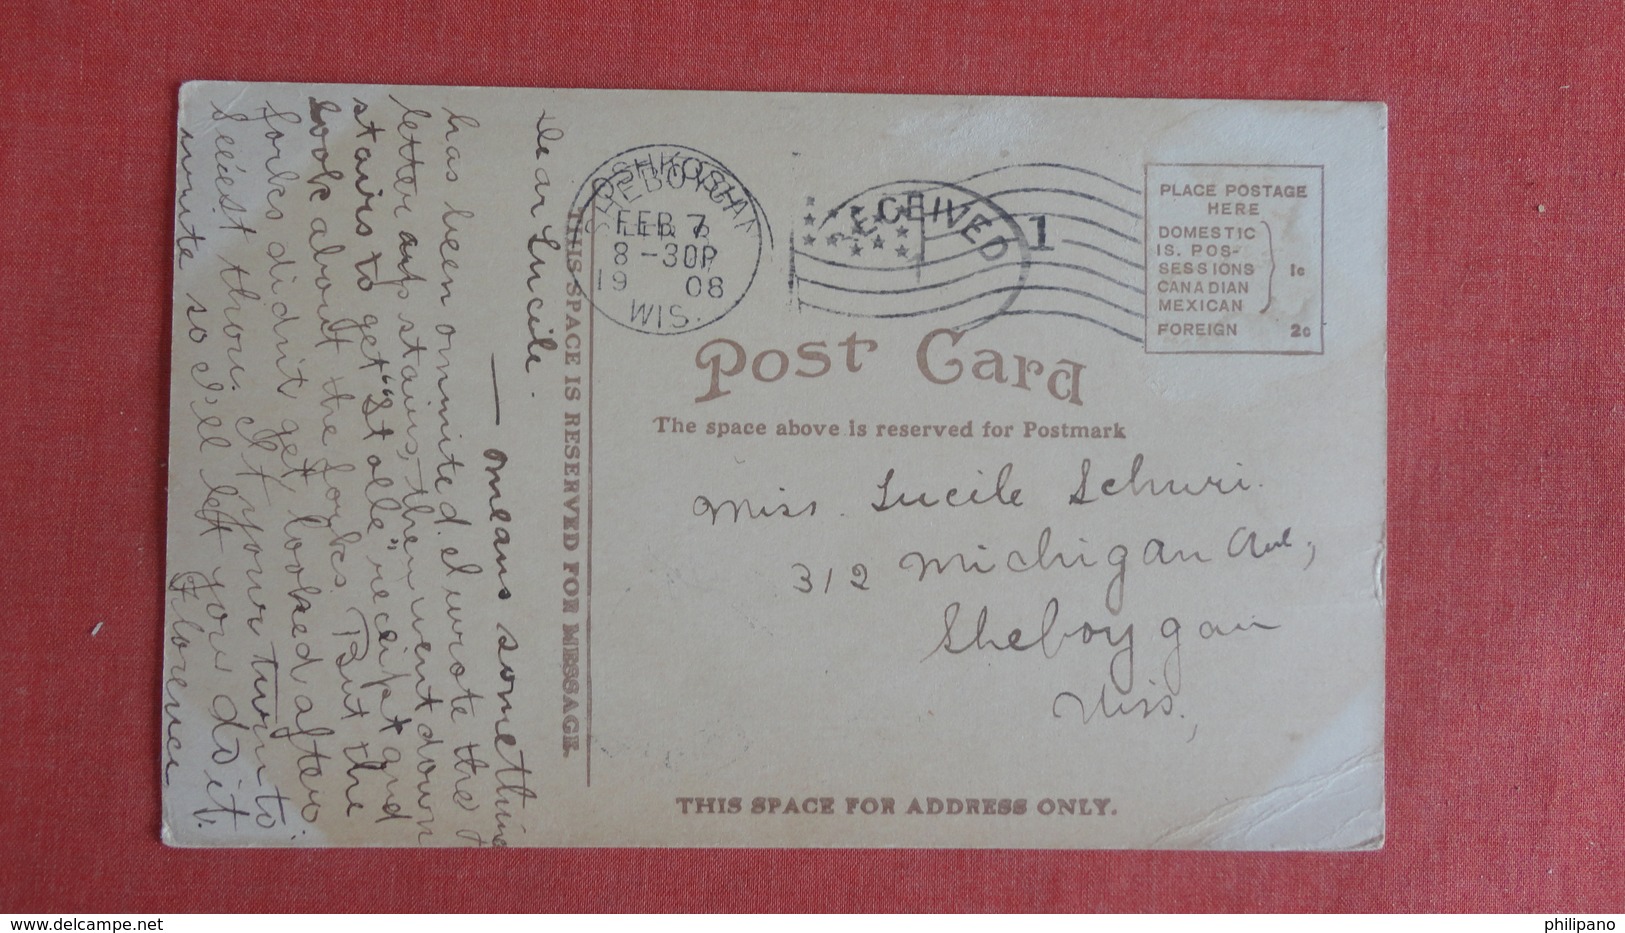 Dear Lucile.
— means something
has been ommited. I wrote the
letter up stairs, then went down
stairs to get "St olle" receipt and
look about the forks. But the
forks didn't get looked after.
I guess thou. It your turn to
write so I'll let you do it.
Florence
THIS SPACE IS RESERVED FOR MESSAGE.
OSHKOSH
SHEBOYGAN
FEB 7
8-30P
1908
WIS.
RECEIVED
1
PLACE POSTAGE
HERE
DOMESTIC
IS. POS-
SESSIONS
CANADIAN
MEXICAN
1c
FOREIGN 2c
Post Card
The space above is reserved for Postmark
Miss. Lucile Schuri.
312 Michigan Ave,
Sheboygan
Wis.,
THIS SPACE FOR ADDRESS ONLY.
www.delcampe.net
philipano